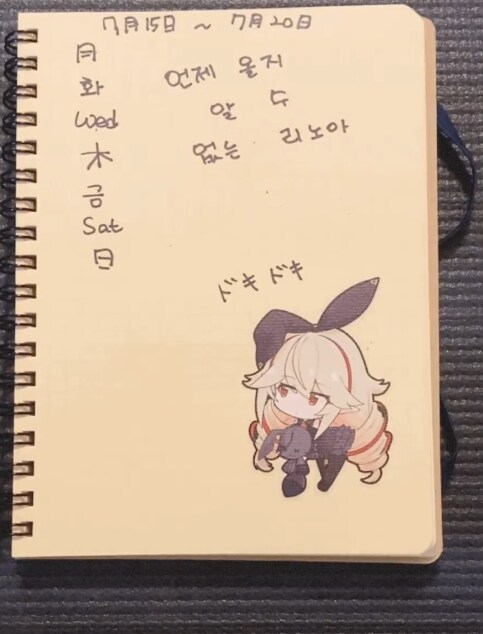 7月15日 ~ 7月20日
月
화 언제 올지
Wed 알 수
木 없는 리노아
금
Sat
日
ドキドキ